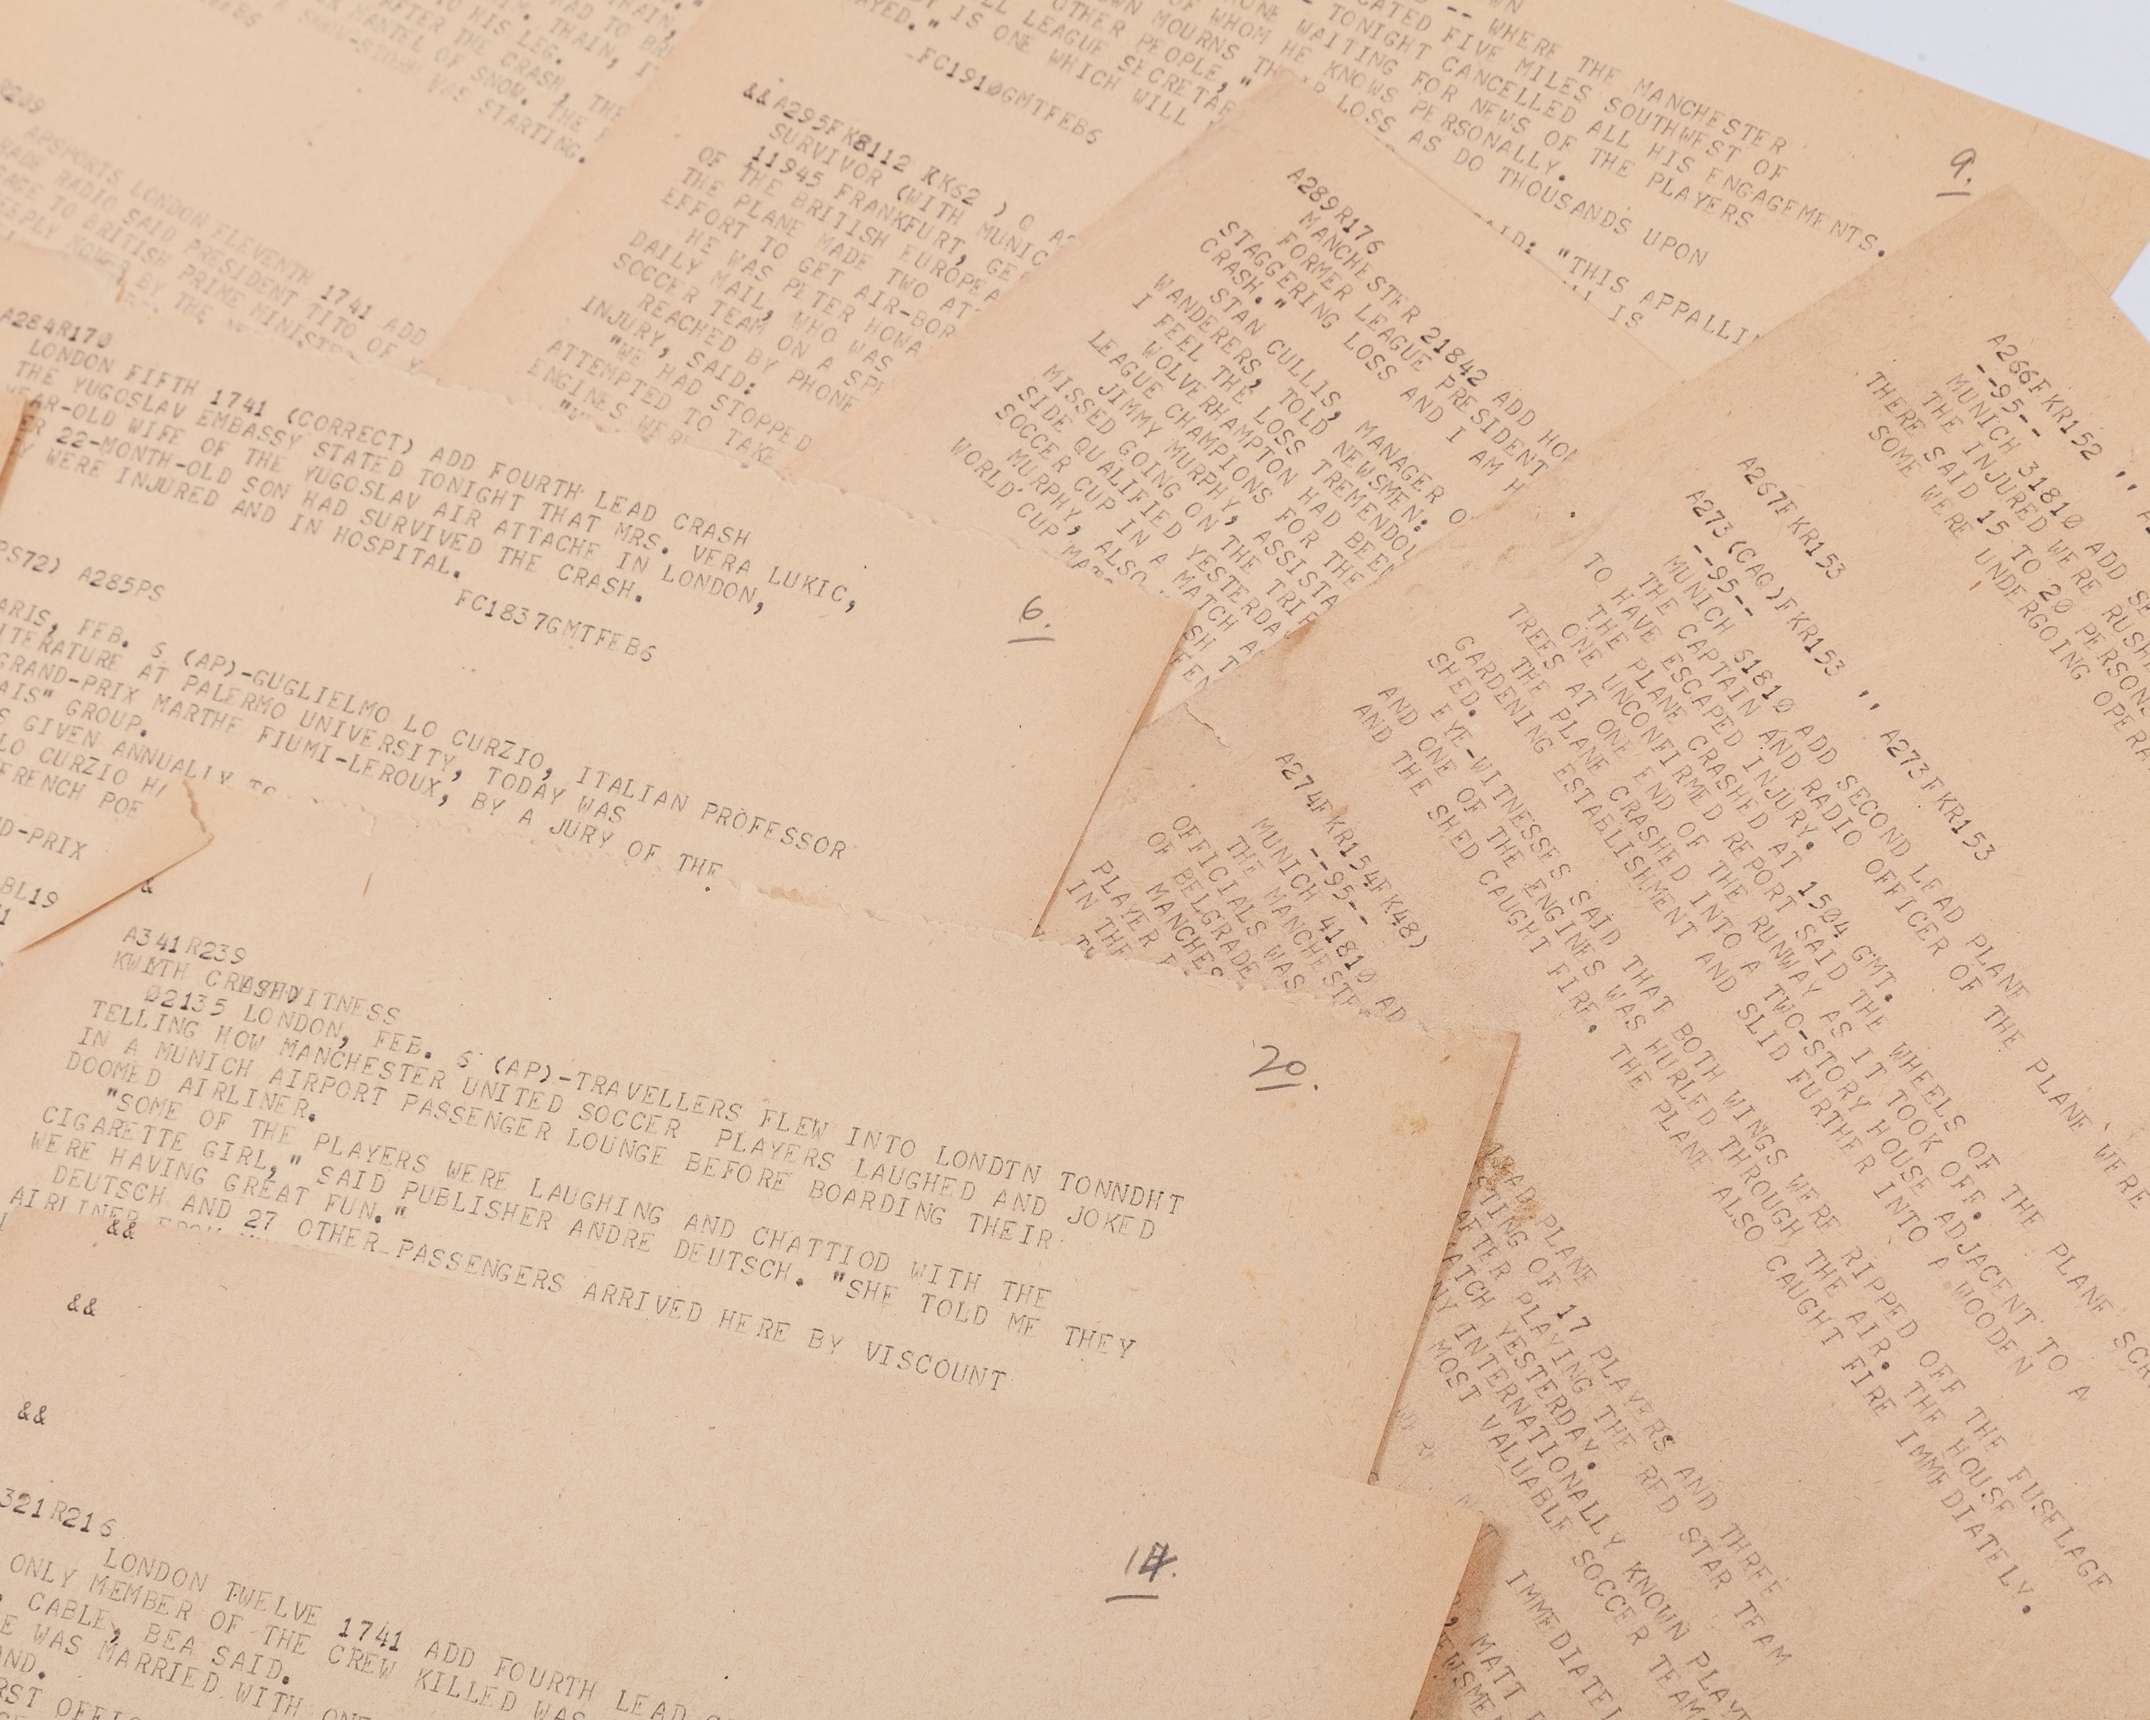 TO HIS LEG.
AFTER THE CRASH, THE
MANTEL OF SNOW. THE
WAS STARTING.
APSPORTS LONDON ELEVENTH 1741 ADD
RADIO SAID PRESIDENT TITO OF
TO BRITISH PRIME MINISTER
BY THE
-- WHERE THE MANCHESTER
CATED FIVE MILES SOUTHWEST OF
TONIGHT CANCELLED ALL HIS ENGAGEMENTS.
WAITING FOR NEWS OF THE PLAYERS
OF WHOM HE KNOWS PERSONALLY.
OWN MOURNS THEIR LOSS AS DO THOUSANDS UPON
OTHER PEOPLE,"
LEAGUE SECRETAR
IS ONE WHICH WILL
AYED."
FC1910GMTFEB6
"THIS APPALLI
IS
9.
&&A295FK8112 KK62 ) Q
SURVIVOR (WITH MUNIC
11945 FRANKFURT, GE
OF THE BRITISH EUROPEA
THE PLANE MADE TWO AT
EFFORT TO GET AIR-BOR
HE WAS PETER HOWA
DAILY MAIL, WHO WAS
SOCCER TEAM ON A SP
REACHED BY PHONE
INJURY, SAID:
"WE HAD STOPPED
ATTEMPTED TO TAKE
ENGINES WERE
A289R176
MANCHESTER 21842 ADD
FORMER LEAGUE PRESIDENT
STAGGERING LOSS AND I AM H
CRASH."
STAN CULLIS, MANAGER O
WANDERERS, TOLD NEWSMEN:
I FEEL THE LOSS TREMENDOU
WOLVERHAMPTON HAD BEEN
LEAGUE CHAMPIONS FOR THE
JIMMY MURPHY, ASSISTA
MISSED GOING ON THE TRIP
SIDE QUALIFIED YESTERDAY
SOCCER CUP IN A MATCH A
MURPHY, ALSO
WORLD CUP
A266FKR152 ,,
--95--
MUNICH 31810 ADD SE
THE INJURED WERE RUSH
THERE SAID 15 TO 20 PERSONS
SOME WERE UNDERGOING OPERA
A267FKR153
A273(CAQ)FKR153 ,, A273FKR153
--95--
MUNICH 51810 ADD SECOND LEAD PLANE
THE CAPTAIN AND RADIO OFFICER OF THE PLANE WERE
TO HAVE ESCAPED INJURY.
THE PLANE CRASHED AT 1504 GMT.
ONE UNCONFIRMED REPORT SAID THE WHEELS OF THE PLANE SCR
TREES AT ONE END OF THE RUNWAY AS IT TOOK OFF.
THE PLANE CRASHED INTO A TWO-STORY HOUSE ADJACENT TO A
GARDENING ESTABLISHMENT AND SLID FURTHER INTO A WOODEN
SHED.
EYE-WITNESSES SAID THAT BOTH WINGS WERE RIPPED OFF THE FUSELAGE
AND ONE OF THE ENGINES WAS HURLED THROUGH THE AIR. THE HOUSE
AND THE SHED CAUGHT FIRE. THE PLANE ALSO CAUGHT FIRE IMMEDIATELY.
A274FKR154FK48)
--95--
MUNICH 41810 AD
THE MANCHESTE
OFFICIALS WAS
OF BELGRADE
MANCHES
PLAYER
IN THE
A284R170
LONDON FIFTH 1741 (CORRECT) ADD FOURTH LEAD CRASH
THE YUGOSLAV EMBASSY STATED TONIGHT THAT MRS. VERA LUKIC,
YEAR-OLD WIFE OF THE YUGOSLAV AIR ATTACHE IN LONDON,
22-MONTH-OLD SON HAD SURVIVED THE CRASH.
WERE INJURED AND IN HOSPITAL.
FC1837GMTFEB6
6.
PS72) A285PS
ARIS, FEB. 6 (AP)-GUGLIELMO LO CURZIO, ITALIAN PROFESSOR
ITERATURE AT PALERMO UNIVERSITY, TODAY WAS
GRAND-PRIX MARTHE FIUMI-LEROUX, BY A JURY OF THE
AIS" GROUP.
GIVEN ANNUALLY TO
LO CURZIO
FRENCH POE
D-PRIX
BL19
&
A341R239
KWLTH CRASHDWITNESS
02135 LONDON, FEB. 6 (AP)-TRAVELLERS FLEW INTO LONDTN TONNDHT
TELLING HOW MANCHESTER UNITED SOCCER PLAYERS LAUGHED AND JOKED
IN A MUNICH AIRPORT PASSENGER LOUNGE BEFORE BOARDING THEIR
DOOMED AIRLINER.
"SOME OF THE PLAYERS WERE LAUGHING AND CHATTIOD WITH THE
CIGARETTE GIRL," SAID PUBLISHER ANDRE DEUTSCH. "SHE TOLD ME THEY
WERE HAVING GREAT FUN."
DEUTSCH AND 27 OTHER PASSENGERS ARRIVED HERE BY VISCOUNT
AIRLINER FROM
20.
&&
&&
&&
321R216
LONDON TWELVE 1741 ADD FOURTH LEAD
ONLY MEMBER OF THE CREW KILLED WAS
CABLE, BEA SAID.
WAS MARRIED WITH ONE
AND.
14.
LEAD PLANE
STING OF 17 PLAYERS AND THREE
AFTER PLAYING THE RED STAR TEAM
MATCH YESTERDAY.
INTERNATIONALLY KNOWN PLAYE
MOST VALUABLE SOCCER TEAMS
IMMEDIATEL
MATT
NEWSME